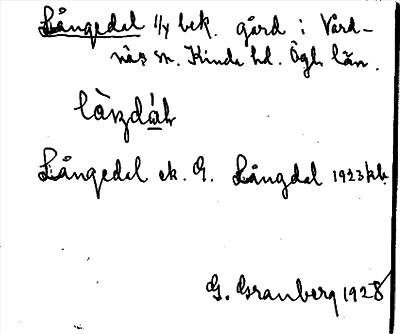 Långedal 1/4 bek. gård i Vård-
näs sn. Kinda hd. Ögl. län.
Långedal ek. G. Långdal 1923 jkb.
G. Granberg 1928